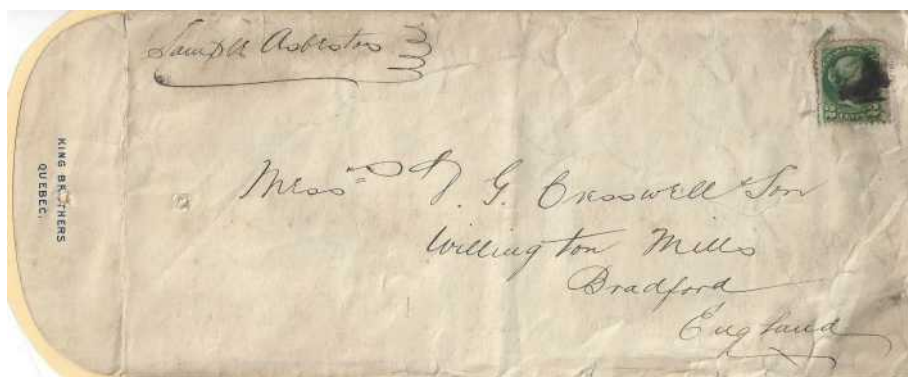 Sample Asbestos
KING BROTHERS
QUEBEC.
Messrs G. Cresswell & Son
Willington Mills
Bradford
England
2 CENTS 2